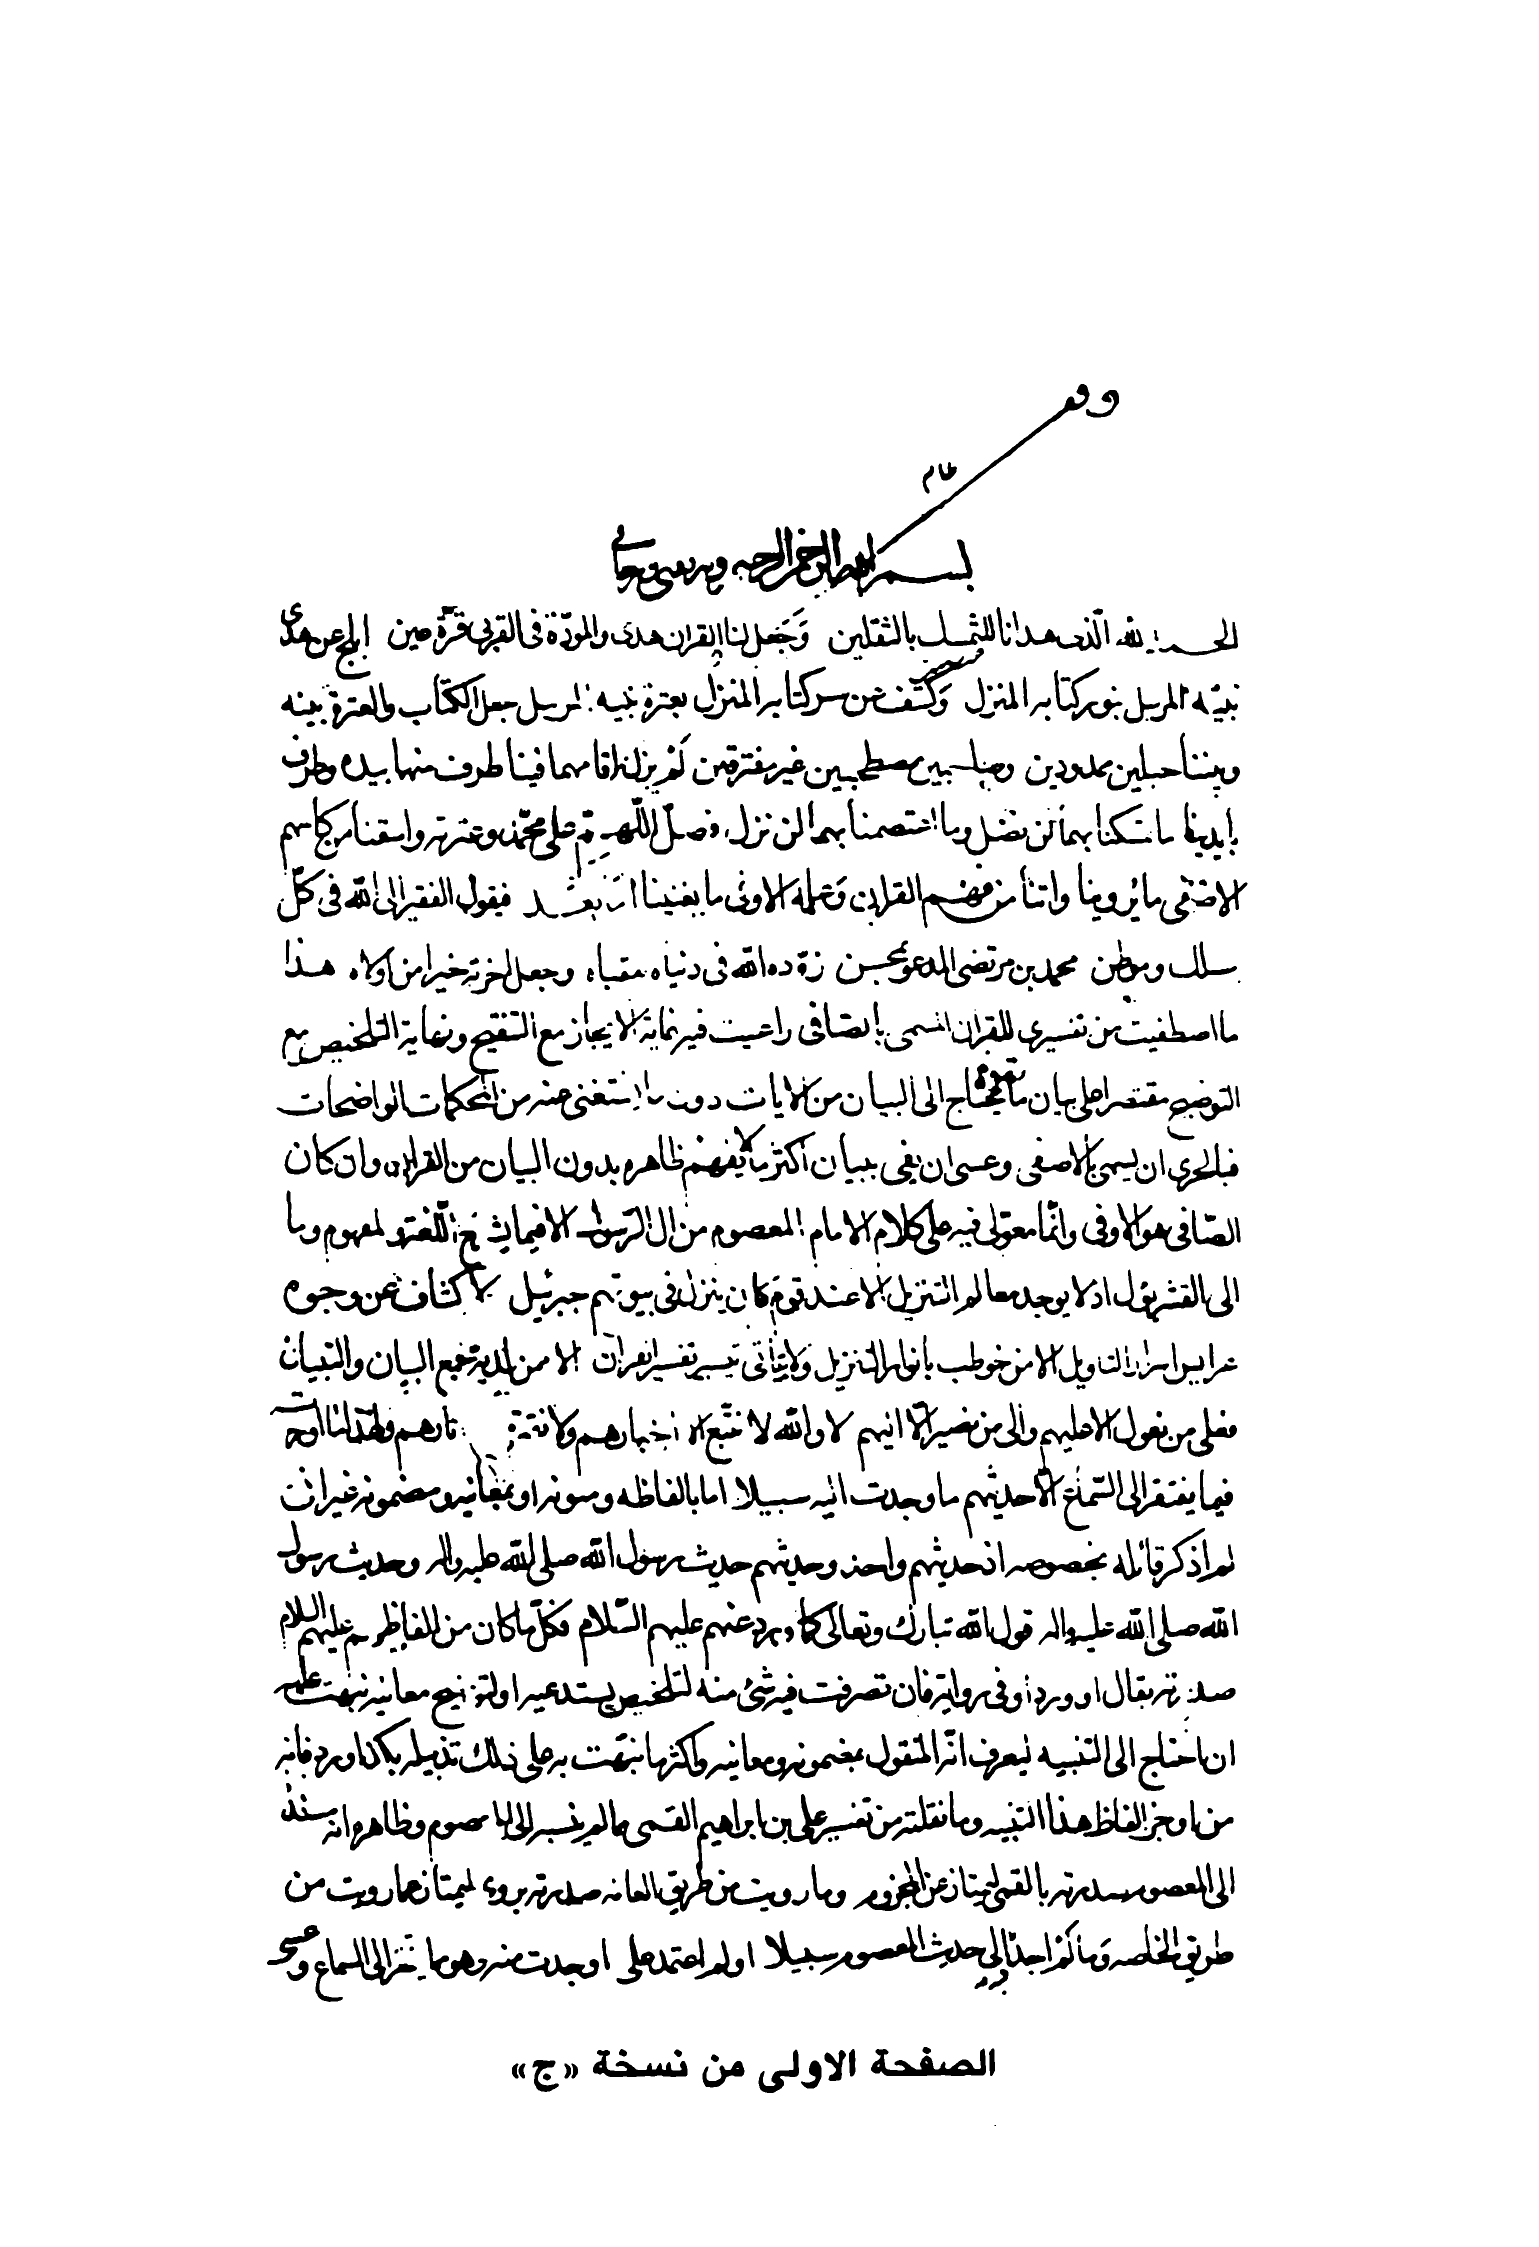 وقف
بسم الله الرحمن الرحيم وبه نستعين
الحمد لله الذى هدانا للتمسك بالثقلين وَجَعل لنا القران هدى والمودّة فى القربى قرّة عين ابلج عن هدى
نبيّه المرسل بنور كتابه المنزل وكشف عن سر كتابه المنزل بعترة نبيه المرسل جعل الكتاب والعترة بينه
وبيننا حبلين ممدودين وصاحبين مصطحبين غير مفترقين لم يزل اقامهما فينا طرف منهما بيده وطرف
بايدينا ما تمسكنا بهما لن نضل وما اعتصمنا بهما لن نزل فصلّ اللّهم على محمّد وعترته واسقنا من كاسهم
الاصفى ما يروينا واتنا من فهم القران وعلمه الاوفى ما يغنينا اما بعد فيقول الفقير الى الله فى كلّ
مسلك وموطن محمد بن مرتضى المدعو بمحسن زوّده الله فى دنياه لعقباه وجعل اخرته خيرا من اولاه هذا
ما اصطفيت من تفسيرى للقران المسمى بالصافى راعيت فيه غاية الايجاز مع التنقيح ونهاية التلخيص مع
التوضيح مقتصرا على بيان ما يحتاج الى البيان من الايات دون ما يستغنى عنه من المحكمات الواضحات
فبالحرى ان يسمى بالاصفى وعسى ان يفى ببيان اكثر ما لا يفهم ظاهره بدون البيان من القران وان كان
الصّافى هو الاوفى وانّما معوّلى فيه على كلام الامام المعصوم من ال الرّسول الا فيما يشرح اللّغة والمفهوم وما
الى القشر يؤل اذ لا يوجد معالم التنزيل الا عند قوم كان ينزل فى بيوتهم جبرئيل ولا كشاف عن وجوه
عرايس اسرار التاويل الا من خوطب بانوار التنزيل ولا يتأتى تيسير تفسير القران الا ممن لديه مجمع البيان والتبيان
فعلى من نعول الا عليهم والى من نصير الا اليهم لا والله لا نتبع الا اخبارهم ولا نقتفى الا اثارهم ولهذا ما اوردت
فيما يفتقر الى السّماع الا حديثهم ما وجدت اليه سبيلا اما بالفاظه ومتونه او بمعانيه ومضمونه غير انى
لم اذكر قائله بخصوصه اذ حديثهم واحد وحديثهم حديث رسول الله صلى الله عليه واله وحديث رسول
الله صلى الله عليه واله قول الله تبارك وتعالى كما ورد عنهم عليهم السّلام فكلّ ما كان من الفاظهم عليهم السلام
صدرته بقال او ورد او فى رواية فان تصرفت فى شئ منه لتلخيص يستدعيه او لتوضيح معانيه نبهت عليه
ان احتاج الى التنبيه ليعرف انّه المنقول بمضمونه ومعانيه واكثر ما نبّهت به على ذلك تذييله بكذا ورد فانه
من اوجز الفاظ هذا التنبيه وما نقلته من تفسير على بن ابراهيم القمى مما لم ينسبه الى المعصوم وظاهره انه مسند
الى المعصوم صدرته بالقمى ليمتاز عن المجزوم وما رويت من طريق العامه صدرته بروى ليمتاز عما رويت من
طريق الخاصه وما لم اجد الى حديث المعصوم سبيلا او لم اعتمد على ما وجدت منه وهو مما يفتقر الى السماع وعسى
الصفحة الاولى من نسخة «ج»